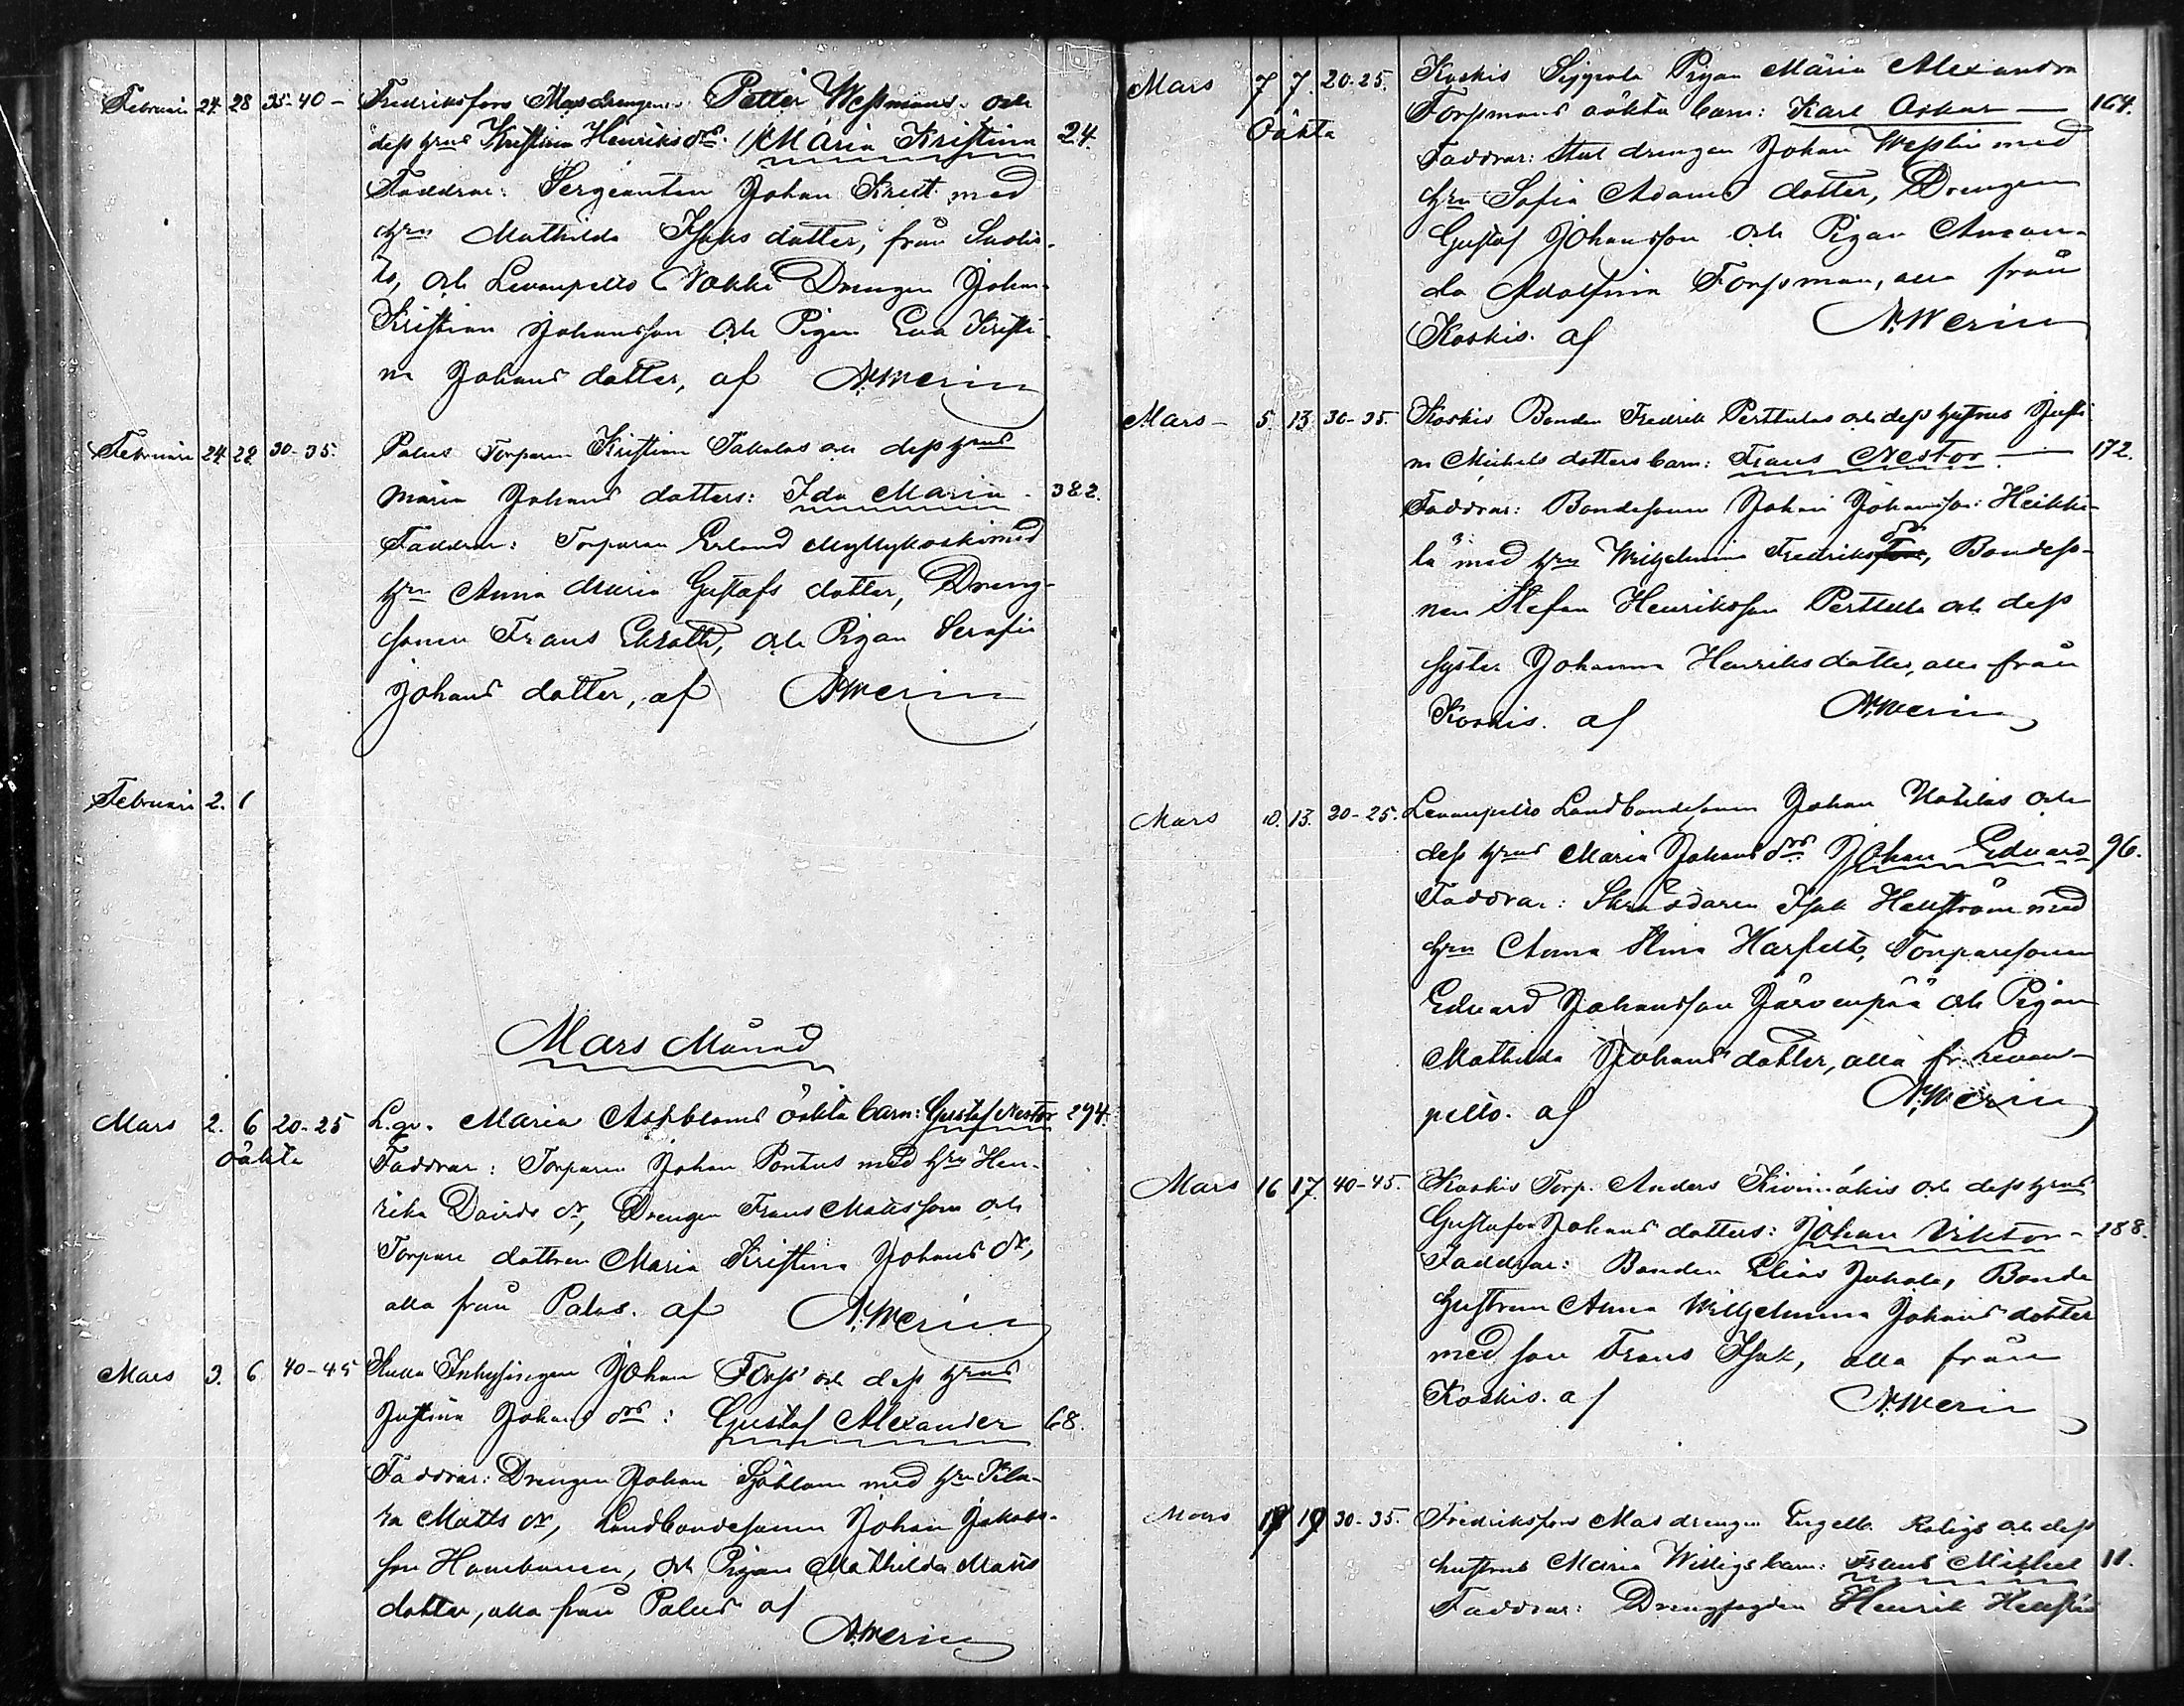 Februari 24 28 35-40 - Fredriksfors Masdrengens Petter Wessmans och
dess hrus Kristina Henriks drs: Maria Kristina 24.
Faddrar: Sergeanten Johan Kvist med
hru Mathilda Isaks dotter, från
och Levanpelto Nokki Drengen Johan
Kristian Johansson och Pigan Eva Kristi-
na Johans dotter, af N. Merin
Februari 24 28 30-35. Palus Torparen Kristian och dess hrus
Maria Johans dotters: Ida Maria - 382.
Faddrar: Torparen Erland Myllykoski med
hru Anna Maria Gustafs dotter, Dreng-
sonen Frans och Pigan Serafia
Johans dotter, af N. Merin
Februari 2. 1
Mars Månad
Mars 2. 6 20-25 L.gr. Maria Askbloms oäkta barn: Gustaf Nestor 294.
oäkta Faddrar: Torparen Johan Pontus med hru Hen-
rika Davids dr, Drengen Frans Matsson och
Torpare dottren Maria Kristina Johans dr,
alla från Palus. af N. Merin
Mars 3. 6 40-45 Kulla Inhysingen Johan Forss och dess hrus
Justina Johans drs: Gustaf Alexander 68.
Faddrar: Drengen Johan Sjöblom med hru
Matts dr, Landbondesonen Johan Jakobs-
son och Pigan Mathilda Matts
dotter, alla från Palus af
N. Merin
Mars 7 7. 20-25. Koskis Pigan Maria Alexandra
Oäkta Forssmans oäkta barn: Karl Oskar — 164.
Faddrar: Stal drengen Johan Wesslin med
hru Sofia Adams dotter, Drengen
Gustaf Johansson och Pigan Aman-
da Adolfina Forssman, alla från
Koskis. af N. Merin
Mars - 5. 13 30-35. Koskis Bonden Fredrik Perttulas och dess hustrus Justi-
na Michels dotters barn: Frans Nestor — 172.
Faddrar: Bondesonen Johan Johansson Heikki-
lä med hru Wilhelmina Fredriks dr, Bondeso-
nen Stefan Henriksson Perttula och dess
syster Johanna Henriks dotter, alla från
Koskis. af N. Merin
Mars 10. 13. 20-25. Levanpelto Landbondesonen Johan och
dess hrus Maria Johans drs Johan Edvard 96.
Faddrar: Skräddaren Isak Hellström med
hru Anna Stina Harfelt, Torparesonen
Edvard Johansson Järvenpää och Pigan
Mathilda Johans dotter, alla fr. Levan-
pelto. af N. Merin
Mars 16 17. 40-45. Koskis Torp. Anders Kivimäkis och dess hrus
Gustafva Johans dotters: Johan Viktor - 188.
Faddrar: Bonden Elias Juhala, Bonde
hustrun Anna Wilhelmina Johans dotter
med son Frans Isak, alla från
Koskis. af N. Merin
Mars 19 30-35. Fredriksfors Masdrengen Engelb. Roligs och dess
hustrus Maria Willigs barn: Frans Mikael 11.
Faddrar: Drengfogden Henrik